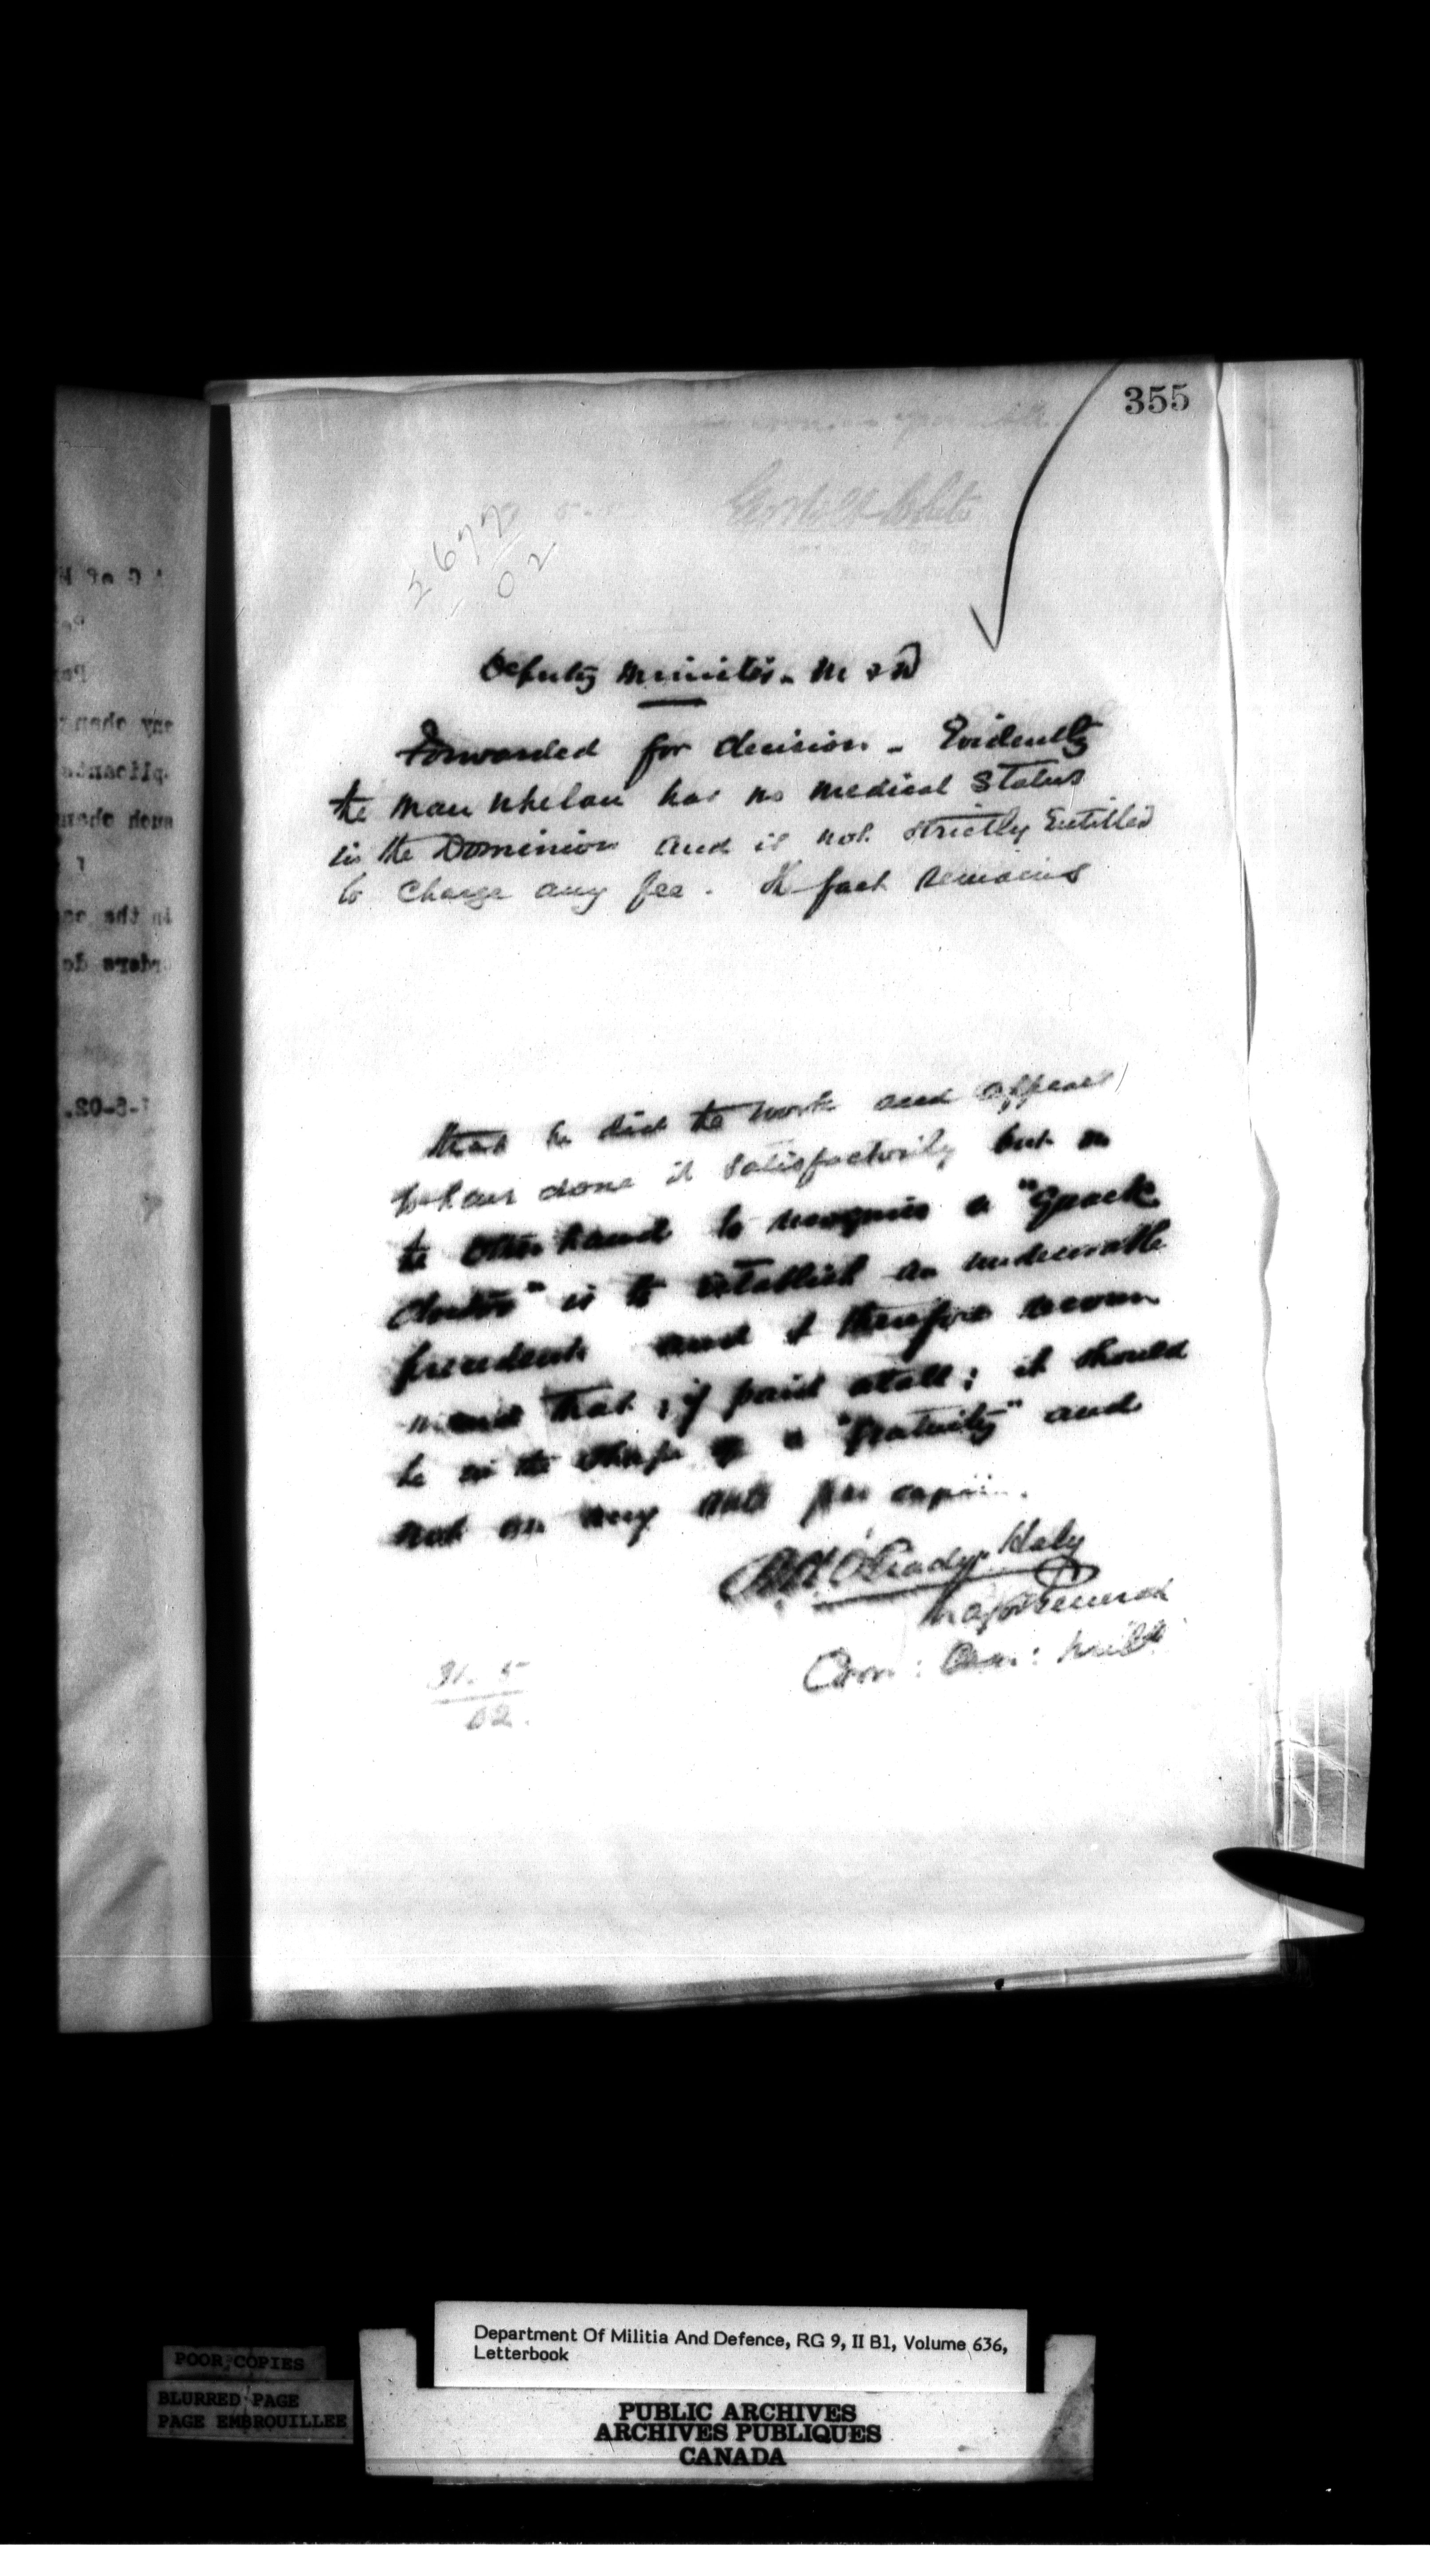 355
5677
02
Deputy Minister - M & D
Forwarded for decision - Evidently
the man Whelan has no medical status
in the Dominion and is not strictly entitled
to charge any fee. The fact remains
that he did the work and appears
to have done it satisfactorily but on
the other hand to recognise a "Quack
doctor" is to establish an undesirable
precedent and I therefore recom
mend that, if paid at all; it should
be in the shape of a "gratuity" and
not on any rate per capita.
O'Grady-Haly
Major General
Com: Can: Mil:
31.5
02.
any chan
in the
orders
-6-02.
Department Of Militia And Defence, RG 9, II B1, Volume 636,
Letterbook
POOR COPIES
BLURRED PAGE
PAGE EMBROUILLEE
PUBLIC ARCHIVES
ARCHIVES PUBLIQUES
CANADA